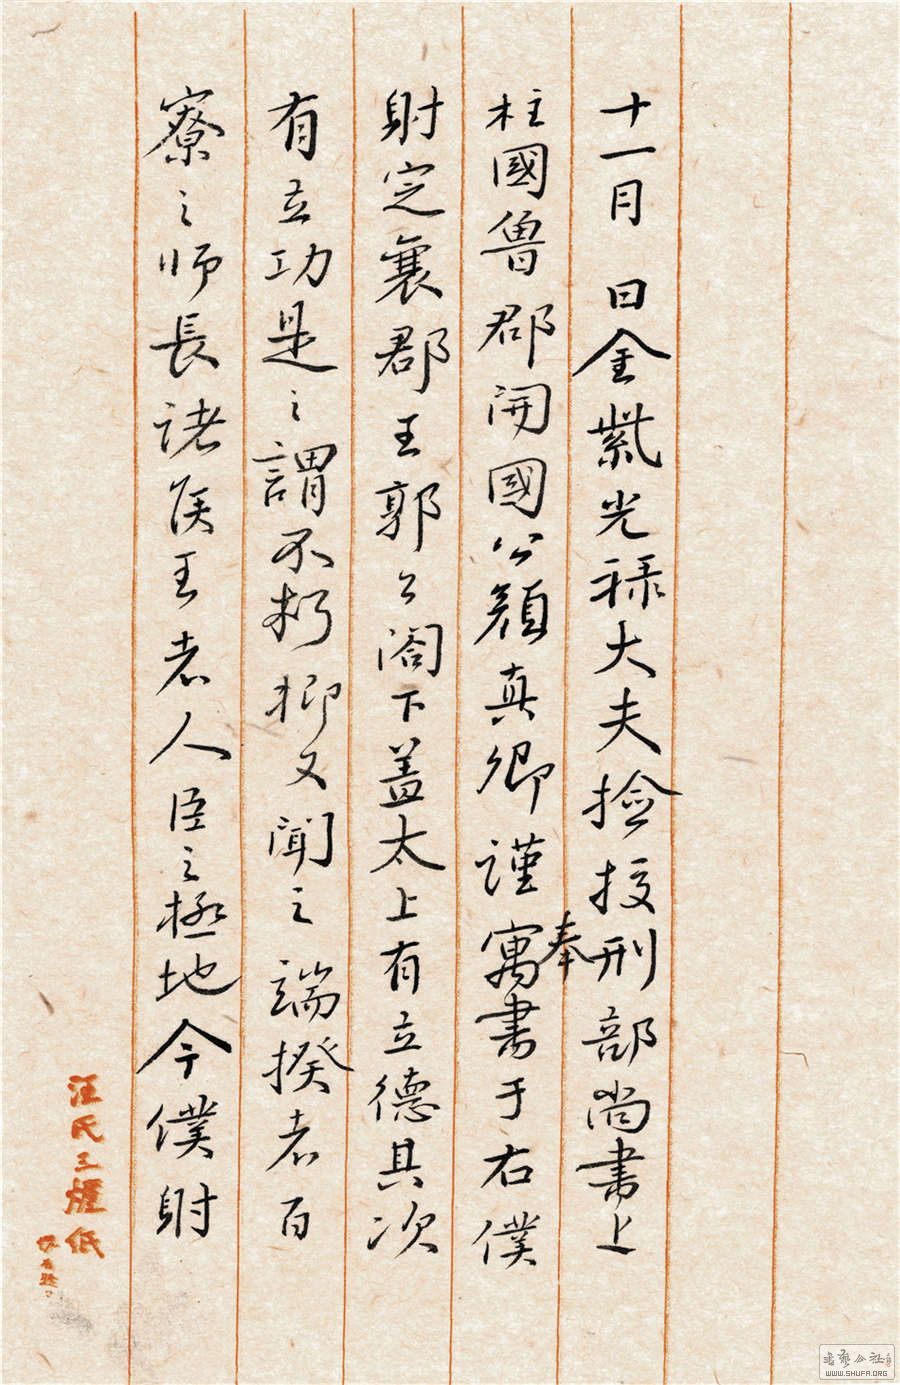 十一月 日金紫光禄大夫捡挍刑部尚書上
柱國魯郡開國公顔真卿謹寓書于右僕
奉
射定襄郡王郭公閤下蓋太上有立德其次
有立功是之謂不朽抑又聞之端揆者百
寮之师長诸侯王者人臣之極地今僕射
汪氏三
紙
WWW.SHUFA.ORG